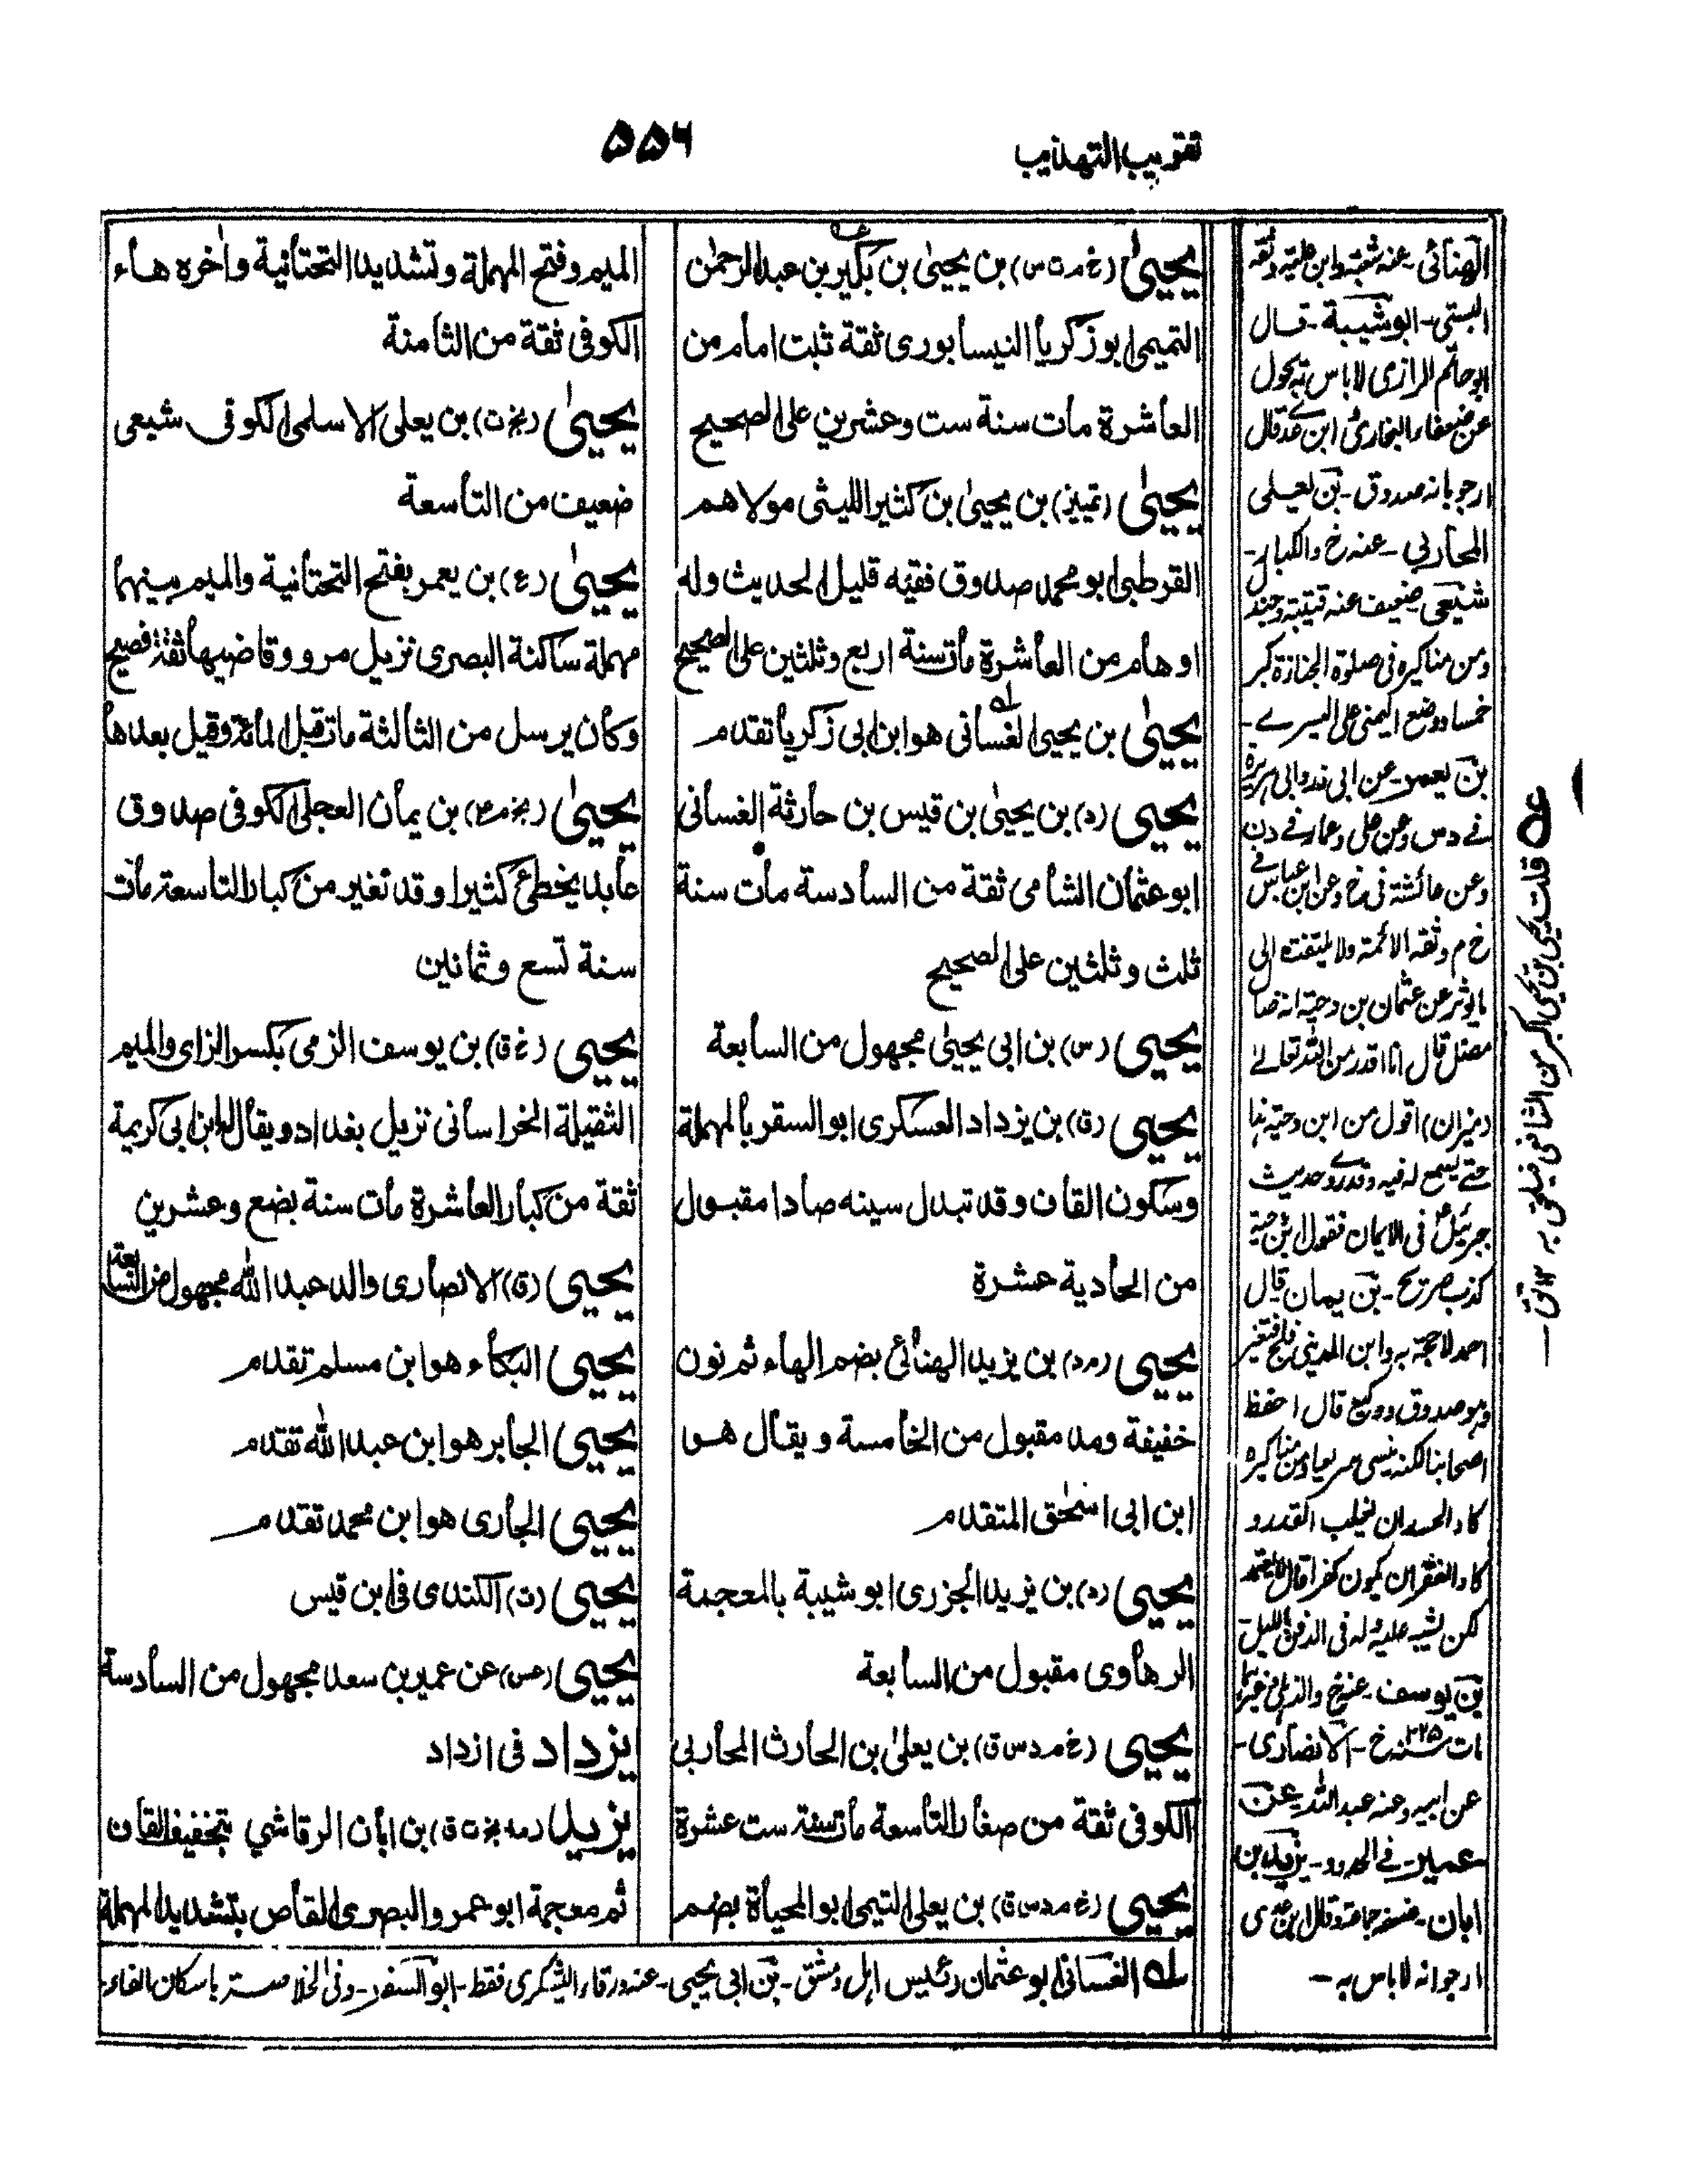 تقريب التهذيب
۵۵۶
يحيىٰ (خ م ت س) بن يحيىٰ بن بكير بن عبد الرحمٰن
التميمى ابو زكريا النيسابورى ثقة ثبت امام من
العاشرة مات سنة ست وعشرين على الصحيح
يحيىٰ (تمييز) بن يحيىٰ بن كثير الليثى مولاهم
القرطبى ابو محمد صدوق فقيه قليل الحديث وله
اوهام من العاشرة مات سنة اربع وثلثين على الصحيح
يحيىٰ بن يحيى الغسانى هو ابن ابى زكريا تقدم
يحيى (د) بن يحيىٰ بن قيس بن حارثة الغسانى
ابو عثمان الشامى ثقة من السادسة مات سنة
ثلث وثلثين على الصحيح
يحيى (س) بن ابى يحيىٰ مجهول من السابعة
يحيى (ق) بن يزداد العسكرى ابو السقر بالمهملة
وسكون القاف وقد تبدل سينه صادا مقبول
من الحادية عشرة
يحيى (م د) بن يزيد الهنائى بضم الهاء ثم نون
خفيفة ومد مقبول من الخامسة ويقال هو
ابن ابى اسحٰق المتقدم
يحيى (د) بن يزيد الجزرى ابو شيبة بالمعجمة
الرهاوى مقبول من السابعة
يحيى (خ م د س ق) بن يعلىٰ بن الحارث المحاربى
الكوفى ثقة من صغار التاسعة مات سنة ست عشرة
يحيى (خ م د س ق) بن يعلى التيمى ابو المحياة بضم
الميم وفتح المهملة وتشديد التحتانية واٰخره هاء
الكوفى ثقة من الثامنة
يحيىٰ (بخ ت) بن يعلى الاسلمى الكوفى شيعى
ضعيف من التاسعة
يحيىٰ (ع) بن يعمر بفتح التحتانية والميم بينهما
مهملة ساكنة البصرى نزيل مرو وقاضيها ثقة فصيح
وكان يرسل من الثالثة مات قبل المائة وقيل بعدها
يحيىٰ (بخ م ع) بن يمان العجلى الكوفى صدوق
عابد يخطئ كثيرا وقد تغير من كبار التاسعة مات
سنة تسع وثمانين
يحيى (خ ق) بن يوسف الزمى بكسر الزاى والميم
الثقيلة الخراسانى نزيل بغداد ويقال له ابن ابى كريمة
ثقة من كبار العاشرة مات سنة بضع وعشرين
يحيى (ق) الانصارى والد عبد الله مجهول من السابعة
يحيى البكاء هو ابن مسلم تقدم
يحيى الجابر هو ابن عبد الله تقدم
يحيى الجارى هو ابن محمد تقدم
يحيى (ت) الكندى فى ابن قيس
يحيى (عس) عن عمير بن سعد مجهول من السادسة
يزداد فى ازداد
يزيد (بخ ت ق) بن ابان الرقاشي بتخفيف القاف
ثم معجمة ابو عمرو البصرى القاص بتشديد المهملة
الهنائى - عنه شعبة وابن علية وثقه
البستى - ابو شيبة - قال
ابو حاتم الرازى لا باس به يحول
عن ضعفاء البخارى ابن عدى قال
ارجو بانه صدوق - بن يعلى
المحاربى - عنه خ والكبار -
شيعى ضعيف عنه قتيبة وجند
ومن مناكيره فى صلوة الجنازة كبر
خمسا ووضع اليمنى على اليسرے -
بن يعمر - عن ابى ذر وابى هريرة
فے د س وعن على وعمار فے د ن
وعن عائشة فى خ وعن ابن عباس فے
خ م وثقه الائمة ولا يلتفت الى
ما يوثر عن عثمان بن دحية انه ضال
مضل قال انا اقدر من الله تعالےٰ
(ميزان) اقول من ابن دحية هذا
حتے يسمع له فيه وقد روے حديث
جبرئيل فى الايمان فقول ابن دحية
كذب صريح - بن يمان قال
احمد لا حجة به وابن المدينى فلج فتغير
وهو صدوق ووكيع قال احفظ
اصحابنا لكنه نسى سريعا ومن مناكيره
كاد الحسد ان يغلب القدر و
كاد الفقر ان يكون كفرا
بن يوسف - عنه خ والذهلى
مات ۲۲۵سنة خ - الانصارى -
عن ابيه وعنه عبد الله - عن
عمير - فے الحدود - يزيد بن
ابان - ضعفه جماعة وقال ابن عدى
ارجو انه لا باس به -
له الغسانى ابو عثمان رئيس اهل دمشق - بن ابى يحيى - عنه ورقاء اليشكرى فقط - ابو السفر - وفى الخلاصة باسكان الفاء -
عه قلت يحيى بن يحيى اكبر من الشافعى فيلحق به ۱۲